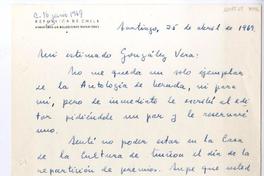 REPÚBLICA DE CHILE
Santiago, 25 de abril de 1969
Mi estimado González Vera:
No me queda un solo ejemplar
de la Antología de Neruda, ni para
mí, pero de inmediato le escribí al edi-
tor pidiéndole un par y le reservaré
uno.
Sentí no poder estar en la Casa
de la Cultura de Ñuñoa el día de la
repartición de premios. Supe que usted